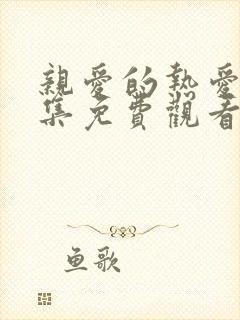 親愛的熱愛
集免費觀看
鱼歌